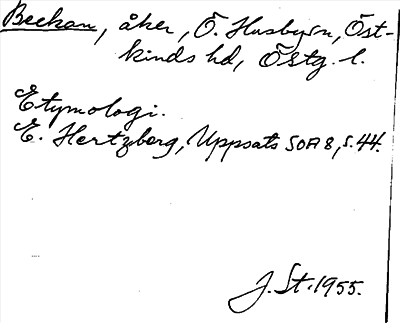 Beckan, åker, Ö. Husbyrn, Öst-
kinds hd, Östg. l.
Etymologi.
E. Hertzberg, Uppsats SOA 8, s. 44.
J. St. 1955.